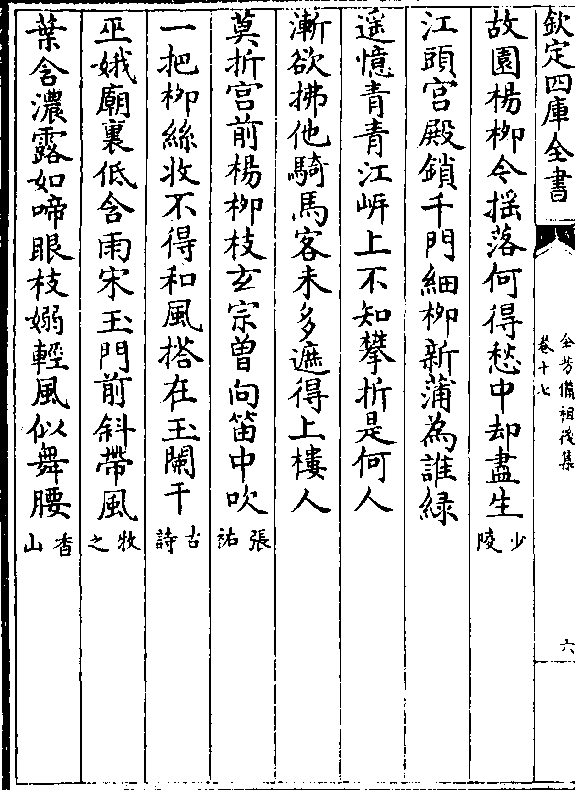 欽定四庫全書
全芳備祖後集
卷十七
六
故園楊柳今揺落何得愁中却盡生少陵
江頭宫殿鎖千門細栁新蒲為誰緑
遥憶青青江岍上不知攀折是何人
漸欲拂他騎馬客未多遮得上樓人
莫折宫前楊栁枝玄宗曽向笛中吹張祜
一把栁絲收不得和風搭在玉闌干古詩
巫娥廟裏低含雨宋玉門前斜帶風牧之
葉含濃露如啼眼枝嫋輕風似舞腰香山